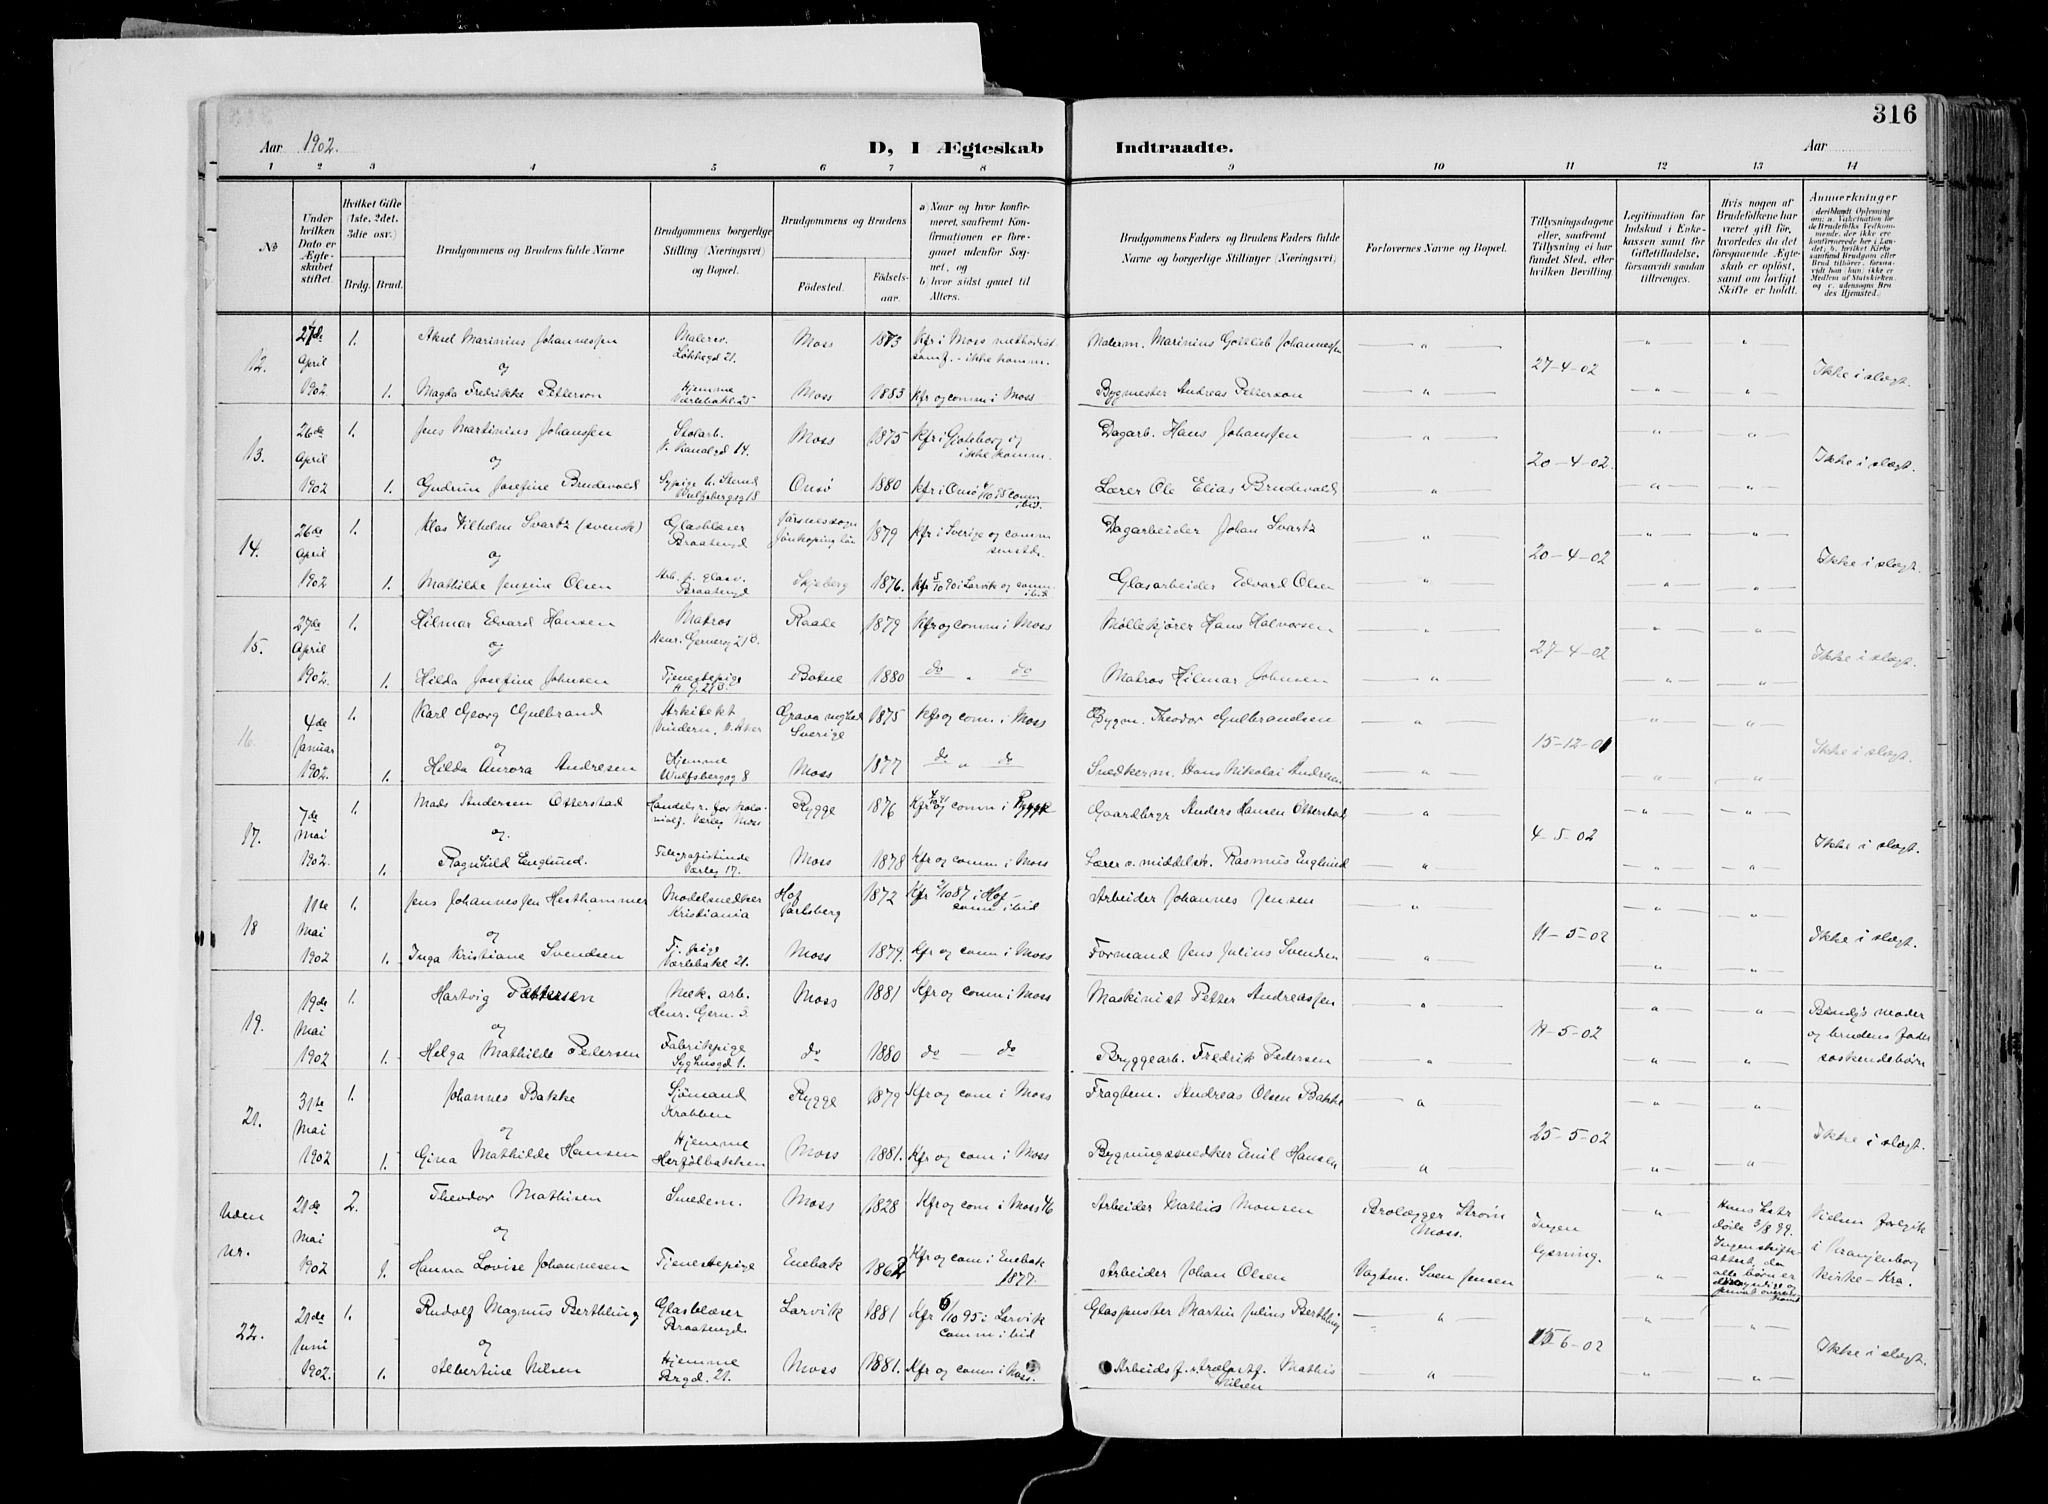 316
Aar 1902.
D, I Ægteskab Indtraadte.
Aar
1 2 3 4 5 6 7 8 9 10 11 12 13 14
No
Under hvilken Dato er Ægteskabet stiftet.
Hvilket Gifte (1ste, 2det, 3die osv.)
Brdg. Brud.
Brudgommens og Brudens fulde Navne
Brudgommens borgerlige Stilling (Næringsvei) og Bopæl.
Brudgommens og Brudens
Fødested. Fødselsaar.
a) Naar og hvor konfirmeret, saafremt Konfirmationen er foregaaet udenfor Sognet, og
b) hvor sidst gaaet til Alters.
Brudgommens Faders og Brudens Faders fulde Navne og borgerlige Stillinger (Næringsvei)
Forlovernes Navne og Bopæl.
Tillysningsdagene eller, saafremt Tillysning ei har fundet Sted, efter hvilken Bevilling.
Legitimation for Indskud i Enkekassen samt for Giftetilladelse, forsaavidt saadan tiltrænges.
Hvis nogen af Brudefolkene har været gift før, hvorledes da det foregaaende Ægteskab er opløst, samt om lovligt Skifte er holdt.
Anmærkninger
12. 27de April 1902 1. Aksel Marinius Johannessen Malersv. Løkkegd 21. Moss 1873 Kfr i Moss methodistsamf. - ikke komm. Malerm. Marinius Gottlieb Johannessen " 27-4-02 " " Ikke i slægt.
og
1. Magda Fredrikke Petterson Hjemme Værlebakl. 25 Moss 1883 Kfr og comm i Moss Bygmester Andreas Petterson " " "
13. 26de April 1902 1. Jens Martinius Johanssen Stolarb. V. Kanalgd 14. Moss 1875 Kfr i Gøteborg og ikke komm. Dagarb. Hans Johanssen " 20-4-02. " " Ikke i slægt.
og
1. Gudrun Josefine Brudevold Sypige Wulfsbergsg 8 Onsø 1880 Kfr i Onsø comm ibid. Lærer Ole Elias Brudevold " " "
14. 26de April 1902 1. Klas Vilhelm Svartz (svensk) Glasblæser Braatengd Jønkøping län 1879 Kfr i Sverige og comm Dagarbeider Johan Svartz " 20-4-02 " " Ikke i slægt.
og
1. Mathilde Jensine Olsen Arb. p. glasv. Braatengd Skjeberg 1876. Kfr 5/10 90 i Larvik og comm. ibid Glasarbeider Edvard Olsen " " "
15. 27de April 1902. 1. Hilmar Edvard Hansen Matros Henr. Gernersg 21 B. Raade 1879 Kfr og comm i Moss Møllekjører Hans Halvorsen " 27-4-02 " " Ikke i slægt.
og
1. Hilda Josefine Johnsen Tjenestepige H. G. 21 B. Botne 1880 do " do Matros Hilmar Johnsen " " "
16. 4de Januar 1902. 1. Karl Georg Gulbrand Arkitekt Vindern, V. Aker Grava Sverige 1875 Kfr og com. i Moss Bygm. Theodor Gulbrandsen " 15-12-01 " " Ikke i slægt.
og
1. Hilda Aurora Andresen Hjemme Wulfsbergsg 8 Moss 1877 do " do Snedkerm. Hans Nikolai Andresen " " "
17. 7de Mai 1902. 1. Mads Andersen Otterstad Handelsr. for Værleg Moss Rygge 1876 Kfr og comm i Rygge Gaardbrgr Anders Hansen Otterstad " 4-5-02 " " Ikke i slægt.
og.
1. Ragnhild Englund. Telegrafistinde Værleg 17. Moss 1878 Kfr og comm i Moss Lærer v. middelsk. Rasmus Englund " " "
18 11te Mai 1902 1. Jens Johannessen Hesthammer Modelsnedker Kristiania Hof Jarlsberg 1872 Kfr 2/10 87 i Hof - comm ibid Arbeider Johannes Jensen " 11-5-02 " " Ikke i slægt.
og
1. Inga Kristiane Svendsen Tj. pige Værlebakl 21. Moss 1879. Kfr og comm i Moss Formand Jens Julius Svendsen " " "
19. 19de Mai 1902 1. Hartvig Pettersen Mek. arb. Henr. Gern. 3. Moss 1881 Kfr og comm i Moss Maskinist Petter Andreassen " 11-5-02 " " Brudg's moder og brudens fader søskendebørn
og
1. Helga Mathilde Pedersen Fabrikpige Syghusgd 1. do 1880 do - do Bryggearb. Fredrik Pedersen " " "
21. 31te Mai 1902 1. Johannes Bakke Sjømand Krabben Rygge 1879 Kfr og com i Moss Fragtem. Andreas Olsen Bakke " 25-5-02 " " Ikke i slægt.
og
1. Gina Mathilde Hansen Hjemme Herføllbakken Moss 1881. Kfr og com i Moss Bygningssnedker Emil Hansen " " "
Uden nr. 21de Mai 1902 2. Theodor Mathisen Smedem. Moss 1828 Kfr og com i Moss 46 Arbeider Mathis Monsen Brolægger Strøm Moss. Ingen lysning. " Hans døde 3/8 99. Ingen skifteattest, da alle børn er Vielsen foregik i Uranienborg kirke - Kra.
og
1. Hanna Lovise Johannesen Tjenestepige Enebak 1862 Kfr og com i Enebak 1877. Arbeider Johan Olsen Vagtm. Sven Jensen "
22. 21de Juni 1902. 1. Rudolf Magnus Berthling Glasblæser Braatengd. Larvik 1881 Kfr 6/10 95 i Larvik comm ibid Glaspuster Martin Julius Berthling " 15-6-02 " " Ikke i slægt.
og
1. Albertine Nilsen Hjemme Brgd. 21. Moss 1881. Kfr og com i Moss. Arbeidsf. Mathis Nilsen " " "